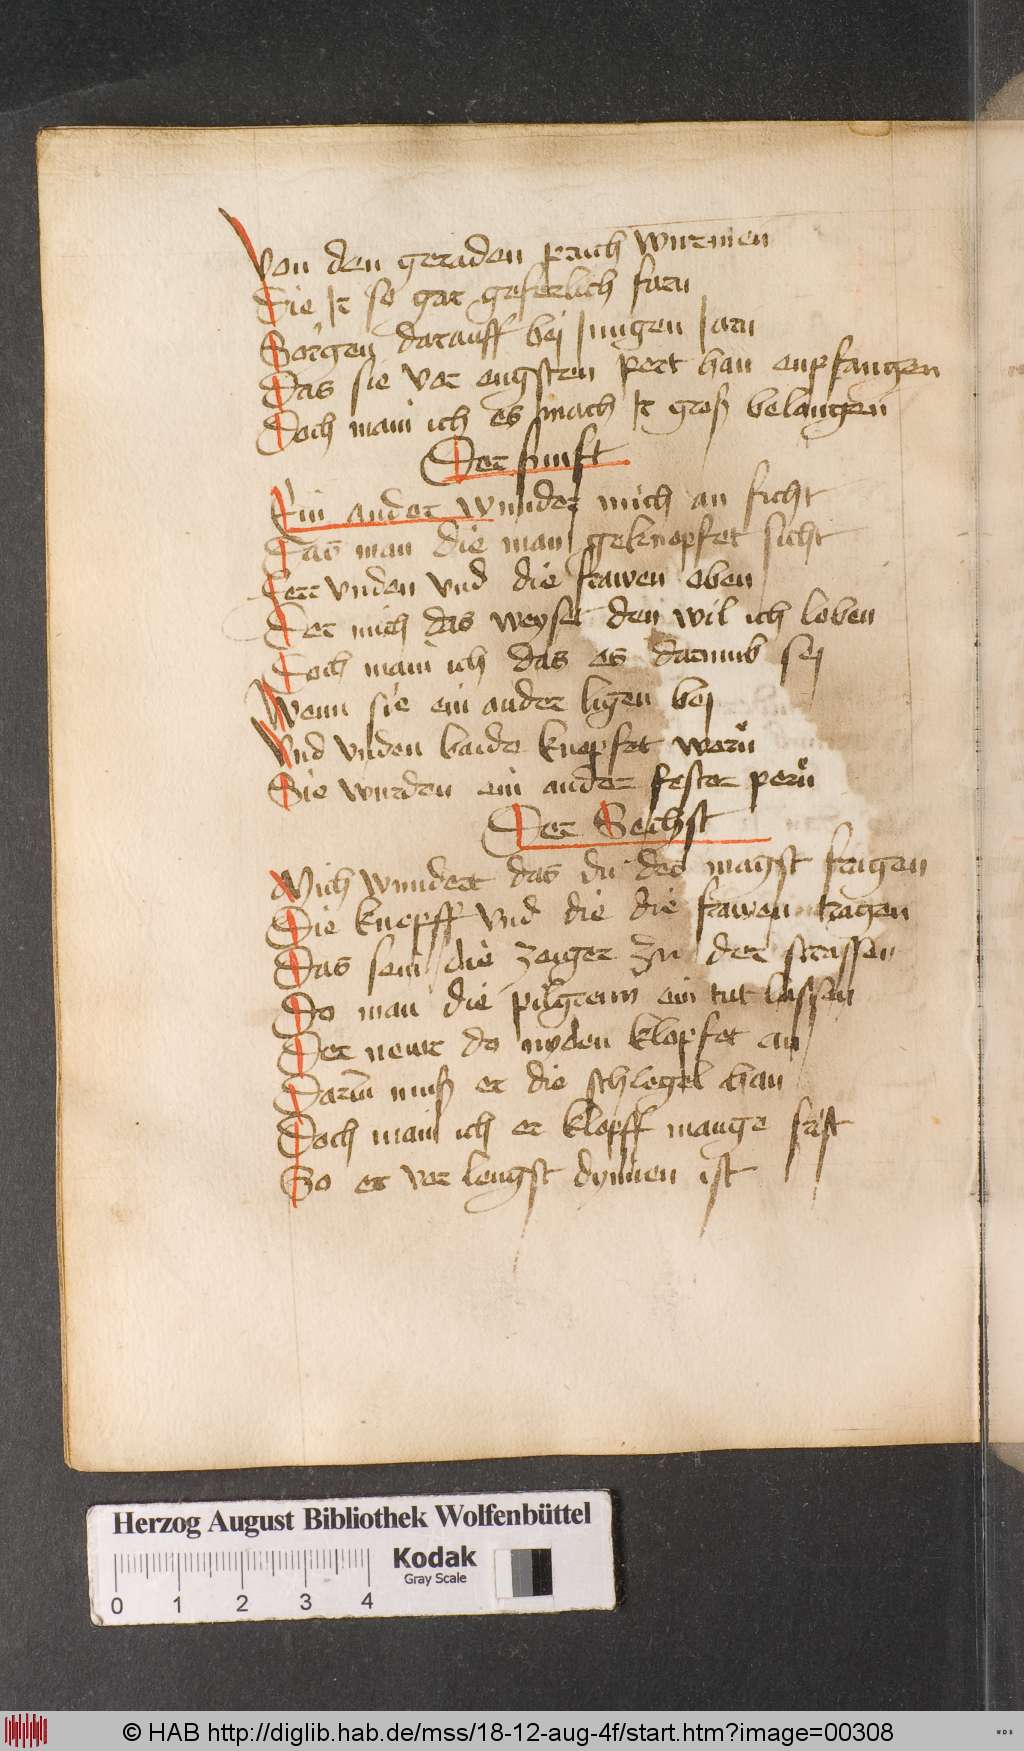 Von den geraden pauch wurmen
Die Ir so gar geferlich farn
Sorgen darauff bej Jungen Jarn
Das sie vor engsten pert han enpfangen
Doch main ich es mach Ir groß belangen
Der funft
Ein ander wunder mich an ficht
Das man die man geknopfet sicht
Fert vnden vnd die frawen oben
Der mich das weyset den wil ich loben
Doch main ich das es darumb sej
Wenn sie ein ander ligen bej
Vnd vnden baide knopfet wern
Sie wurden ein ander fester pern
Der Sechst
Mich wundert das du des magst fragen
Die knopff vnd die die frawen tragen
Das sein die zeiger zu der strassen
Do man die pilgrem ein tut lassen
Der newr do nyden klopfet an
Darum muß er die schlegel han
Doch main ich er klopff mange frist
So er vor lengst dynnen ist
Herzog August Bibliothek Wolfenbüttel
Kodak
Gray Scale
0 1 2 3 4
© HAB http://diglib.hab.de/mss/18-12-aug-4f/start.htm?image=00308